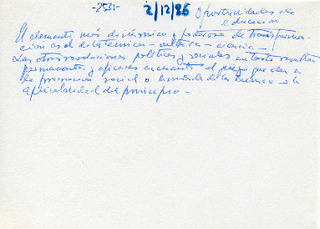 -2531-
2/12/86
Oportunidades de
educación
El elemento más dinámico y poderoso de transforma-
ción es el de la técnica - - ciencia -
Las otras revoluciones políticas y sociales en tanto resultan
permanentes y eficaces en cuanto al que dan en
la promoción social o de la técnica a la
aplicabilidad del principio -